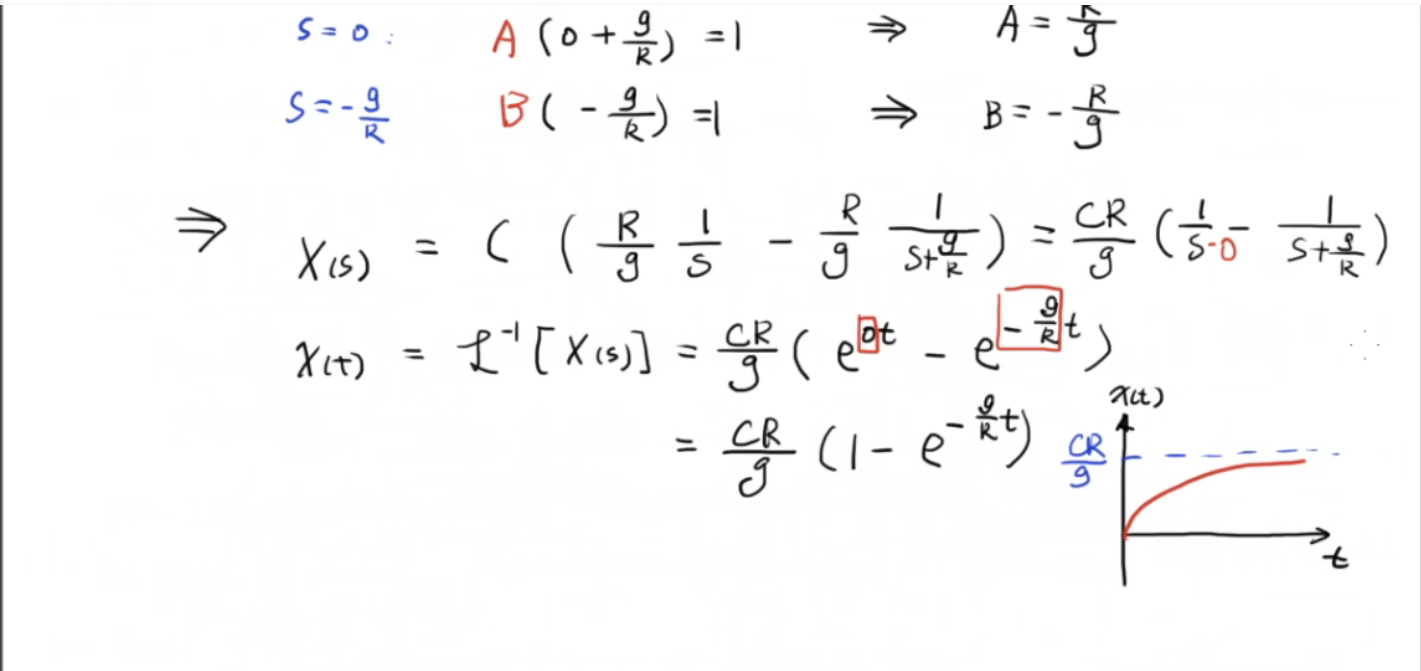 S = 0 : A (0 + g/R) = 1 ⇒ A = R/g
S = -g/R B ( - g/R ) = 1 ⇒ B = - R/g
⇒ X(s) = C ( R/g 1/s - R/g 1/(s+g/R) ) = CR/g ( 1/(s-0) - 1/(s+g/R) )
x(t) = ℒ⁻¹ [ X(s) ] = CR/g ( e^(0t) - e^(-g/R t) )
= CR/g ( 1 - e^(-g/R t) )
x(t)
CR/g
t